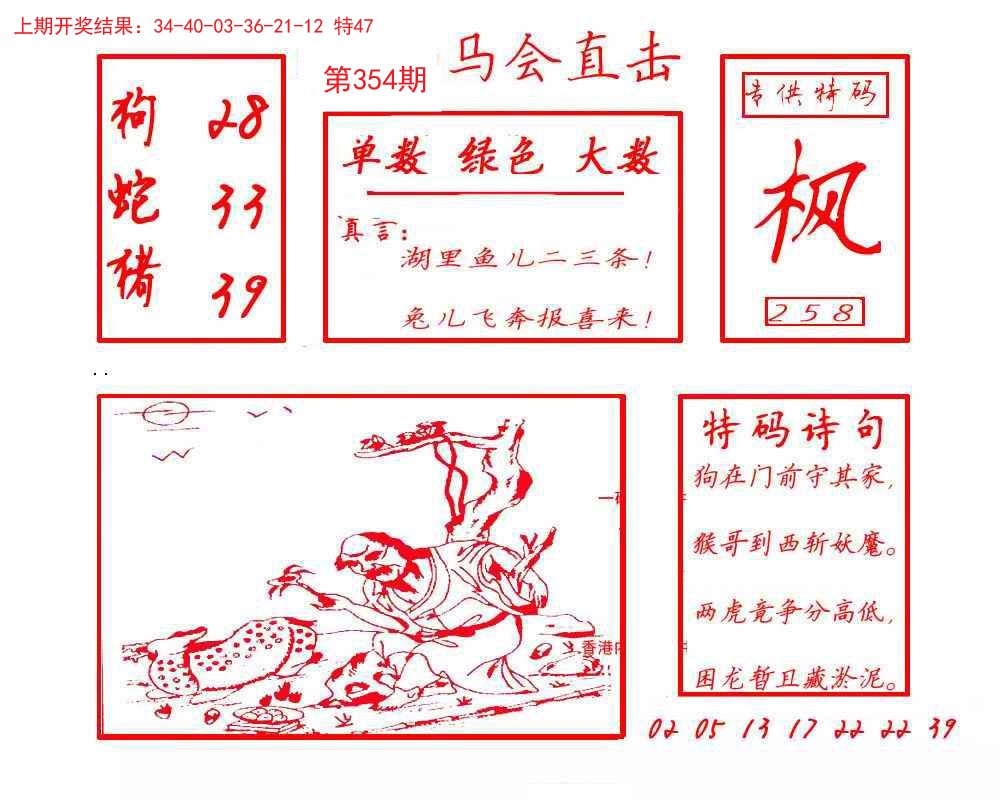 上期开奖结果：34-40-03-36-21-12 特47
第354期
马会直击
狗 28
蛇 33
猪 39
单数 绿色 大数
真言：
湖里鱼儿二三条！
兔儿飞奔报喜来！
专供特码
枫
258
特码诗句
狗在门前守其家，
猴哥到西斩妖魔。
两虎竞争分高低，
困龙暂且藏淤泥。
香港
02 05 13 17 22 22 39